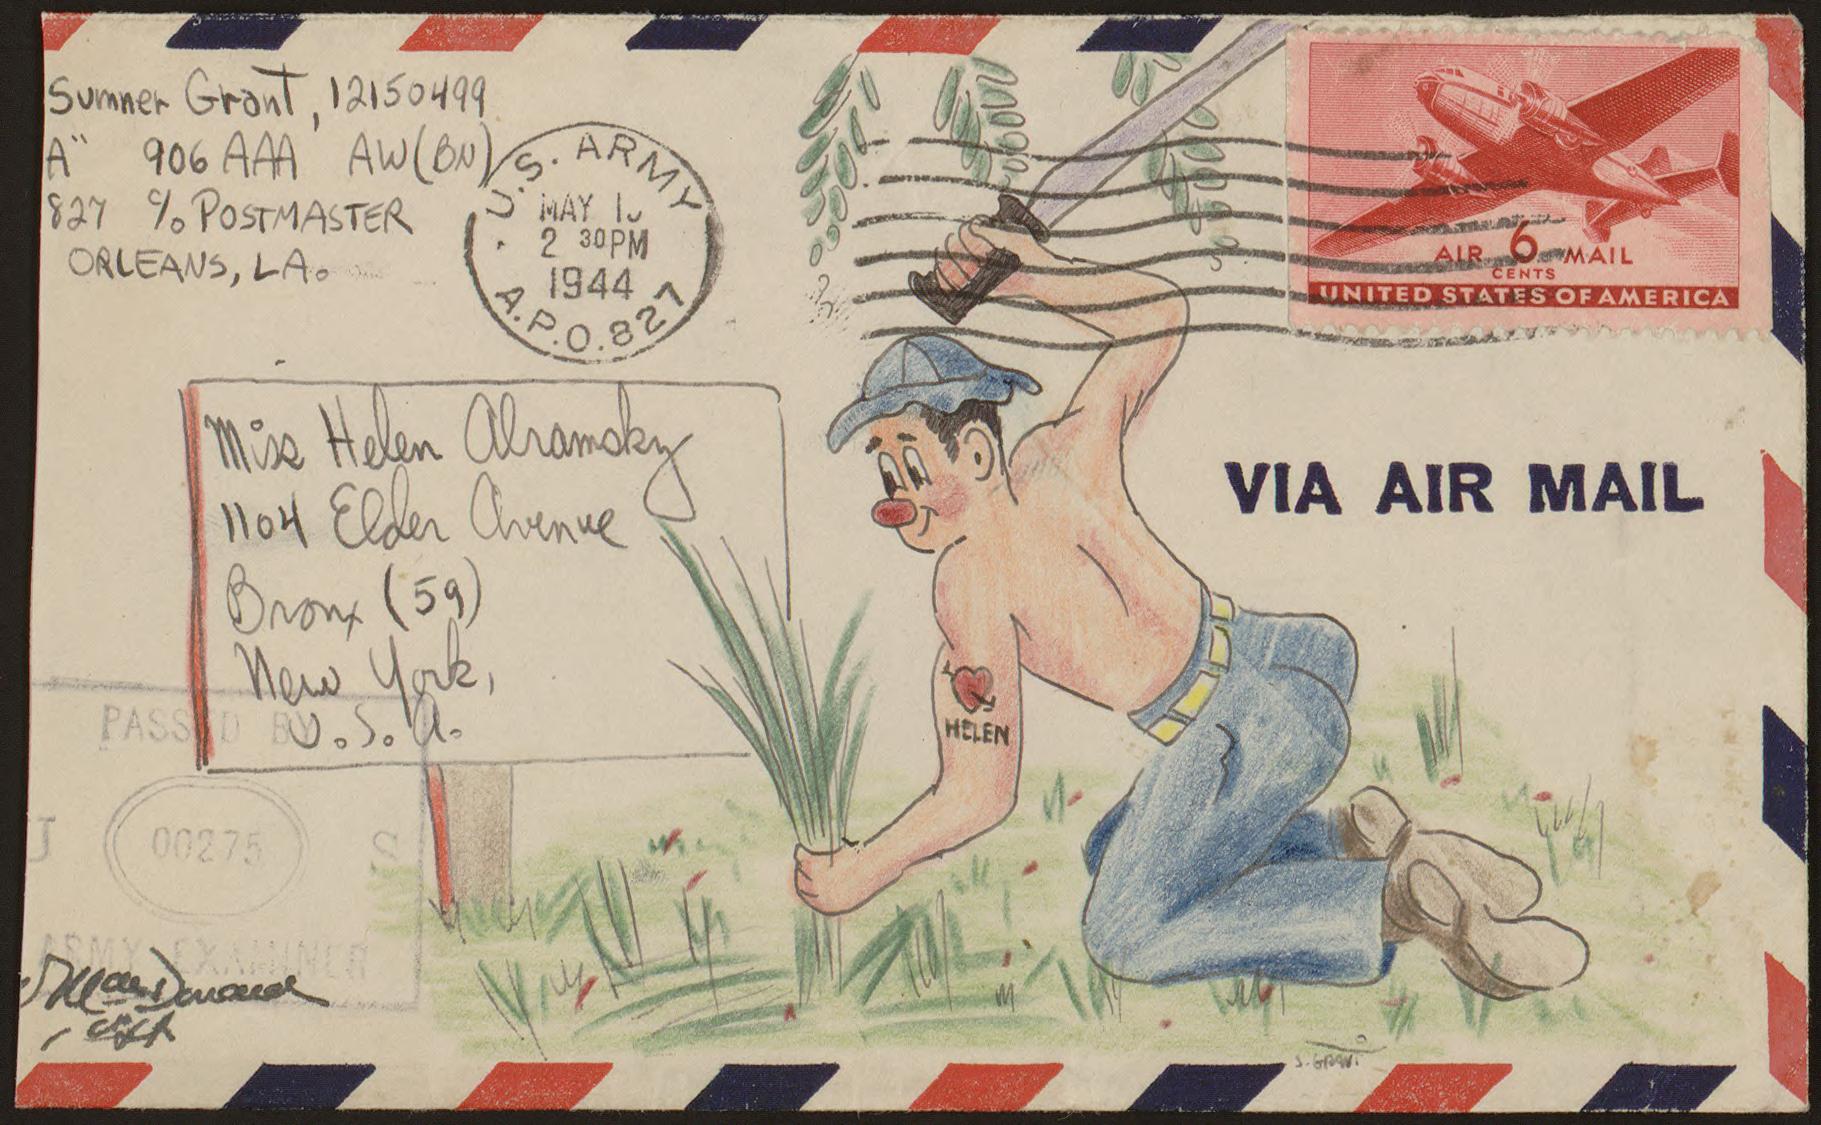 Sumner Grant, 12150499
A" 906 AAA AW(BN)
827 c/o POSTMASTER
ORLEANS, LA.
U.S. ARMY
MAY
2 30PM
1944
A.P.O. 827
AIR 6 MAIL
CENTS
UNITED STATES OF AMERICA
Miss Helen Abramsky
1104 Elder Avenue
Bronx (59)
New York,
U.S.A.
VIA AIR MAIL
HELEN
PASSED BY
00275
S
ARMY EXAMINER
S. GRANT